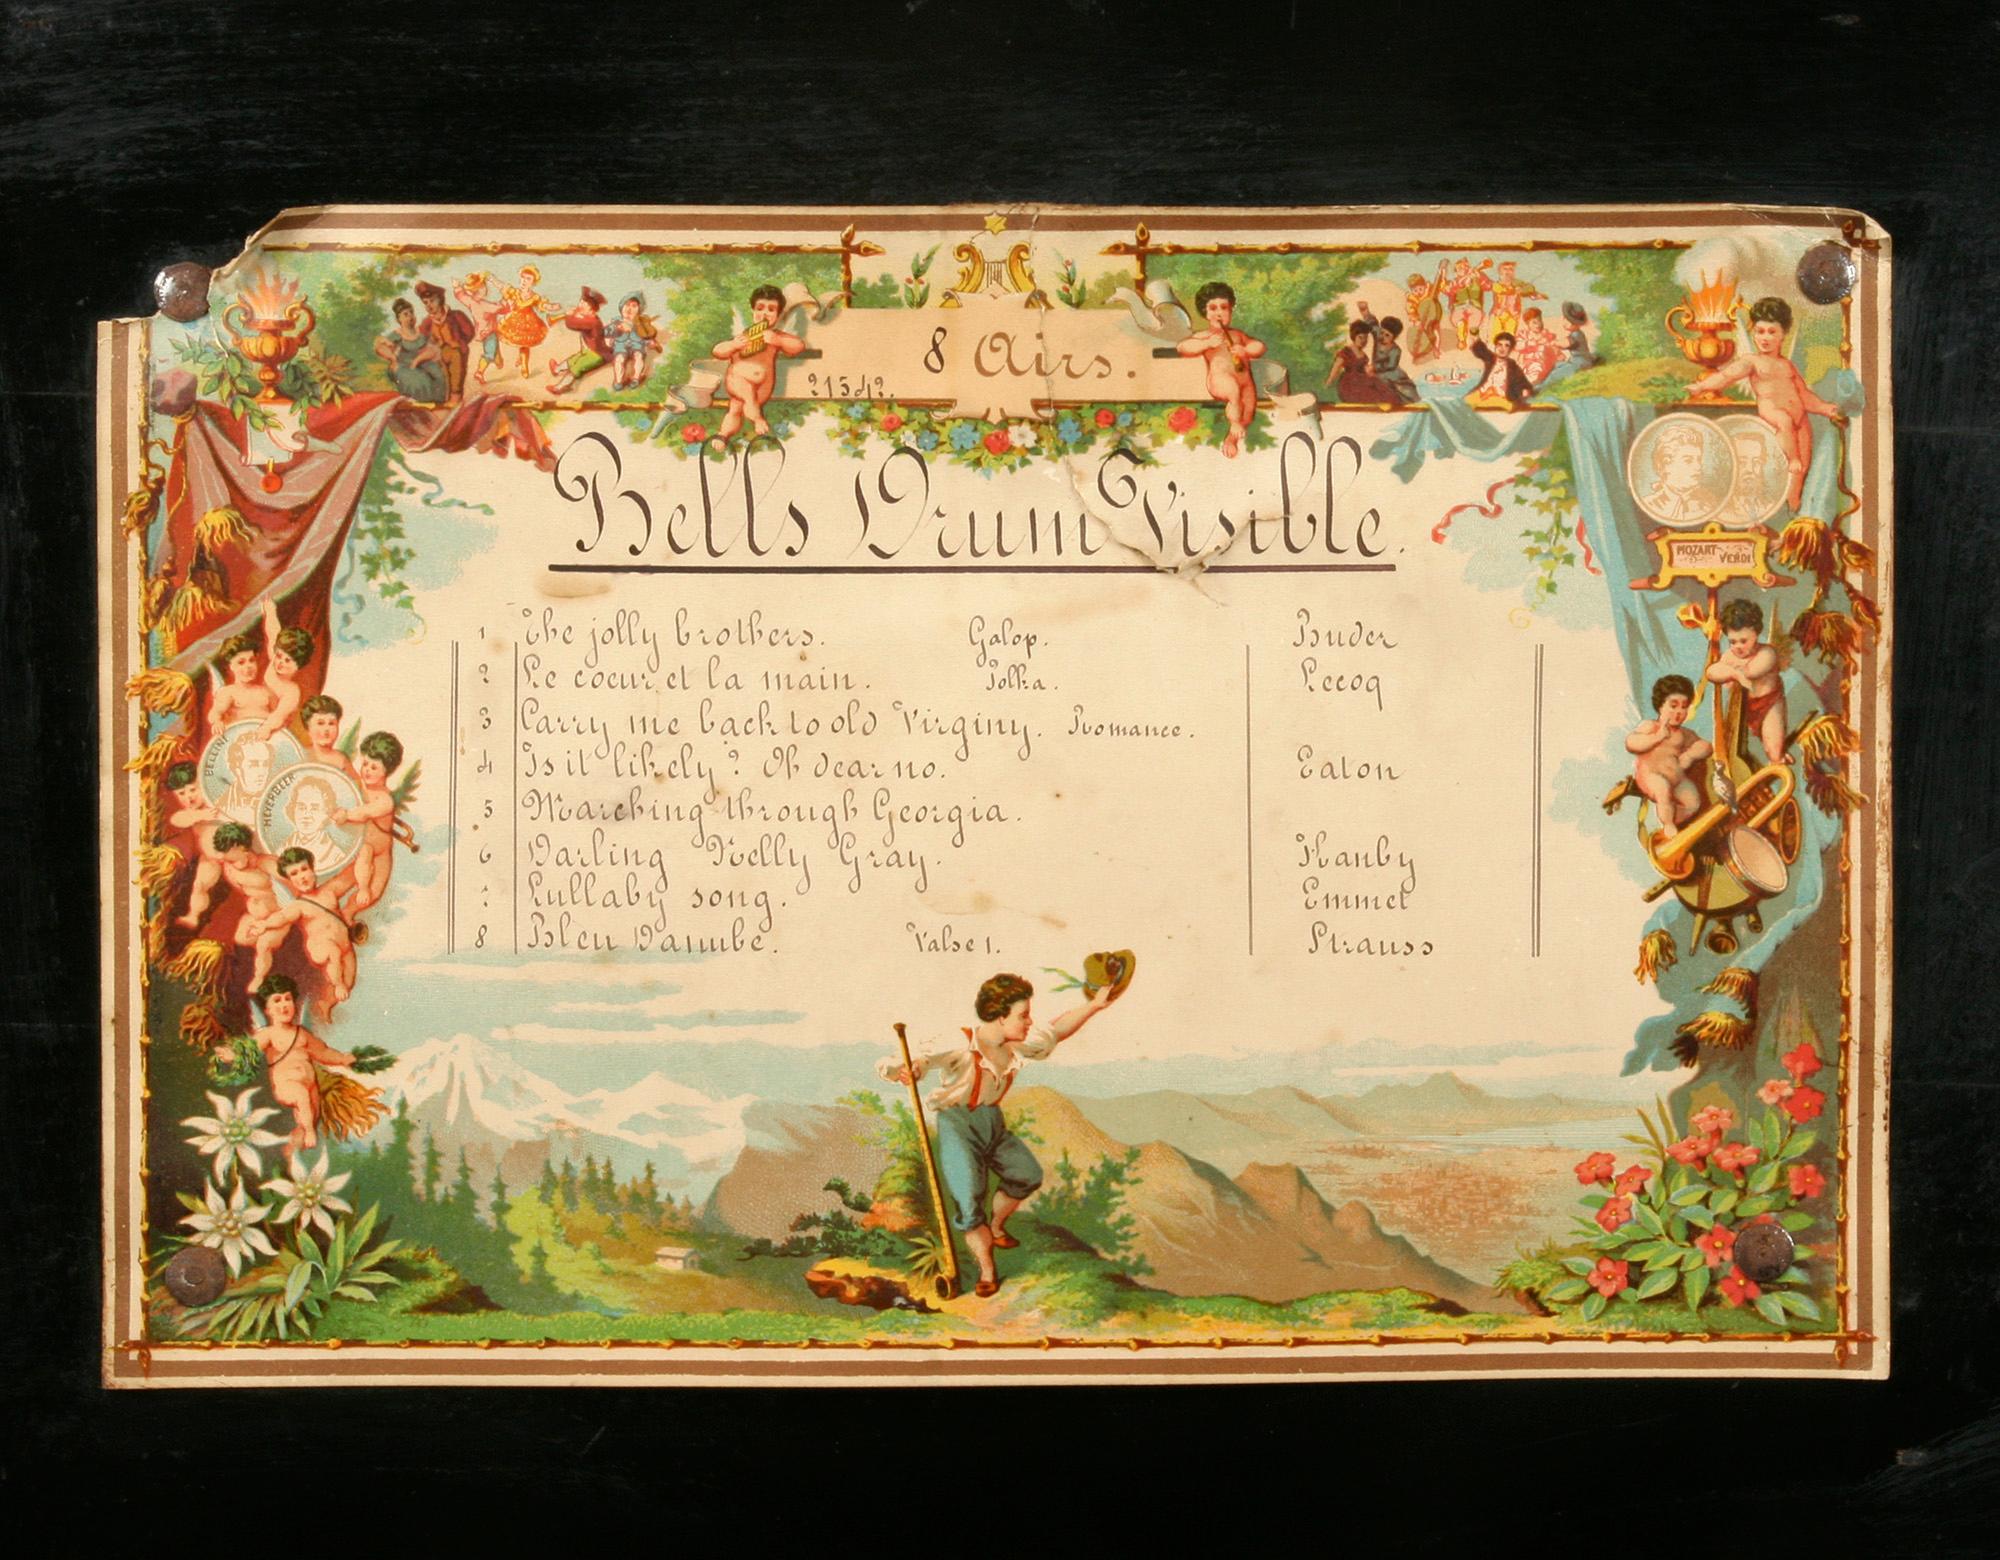 8 Airs.
21542.
Bells Drum Visible.
MOZART VERDI
BELLINI
MEYERBEER
1 The jolly brothers. Galop. Buder
2 Le coeur et la main. Polka. Lecoq
3 Carry me back to old Virginy. Romance.
4 Is it likely? Oh dear no. Eaton
5 Marching through Georgia.
6 Darling Nelly Gray. Hanby
7 Lullaby song. Emmet
8 Bleu Danube. Valse 1. Strauss